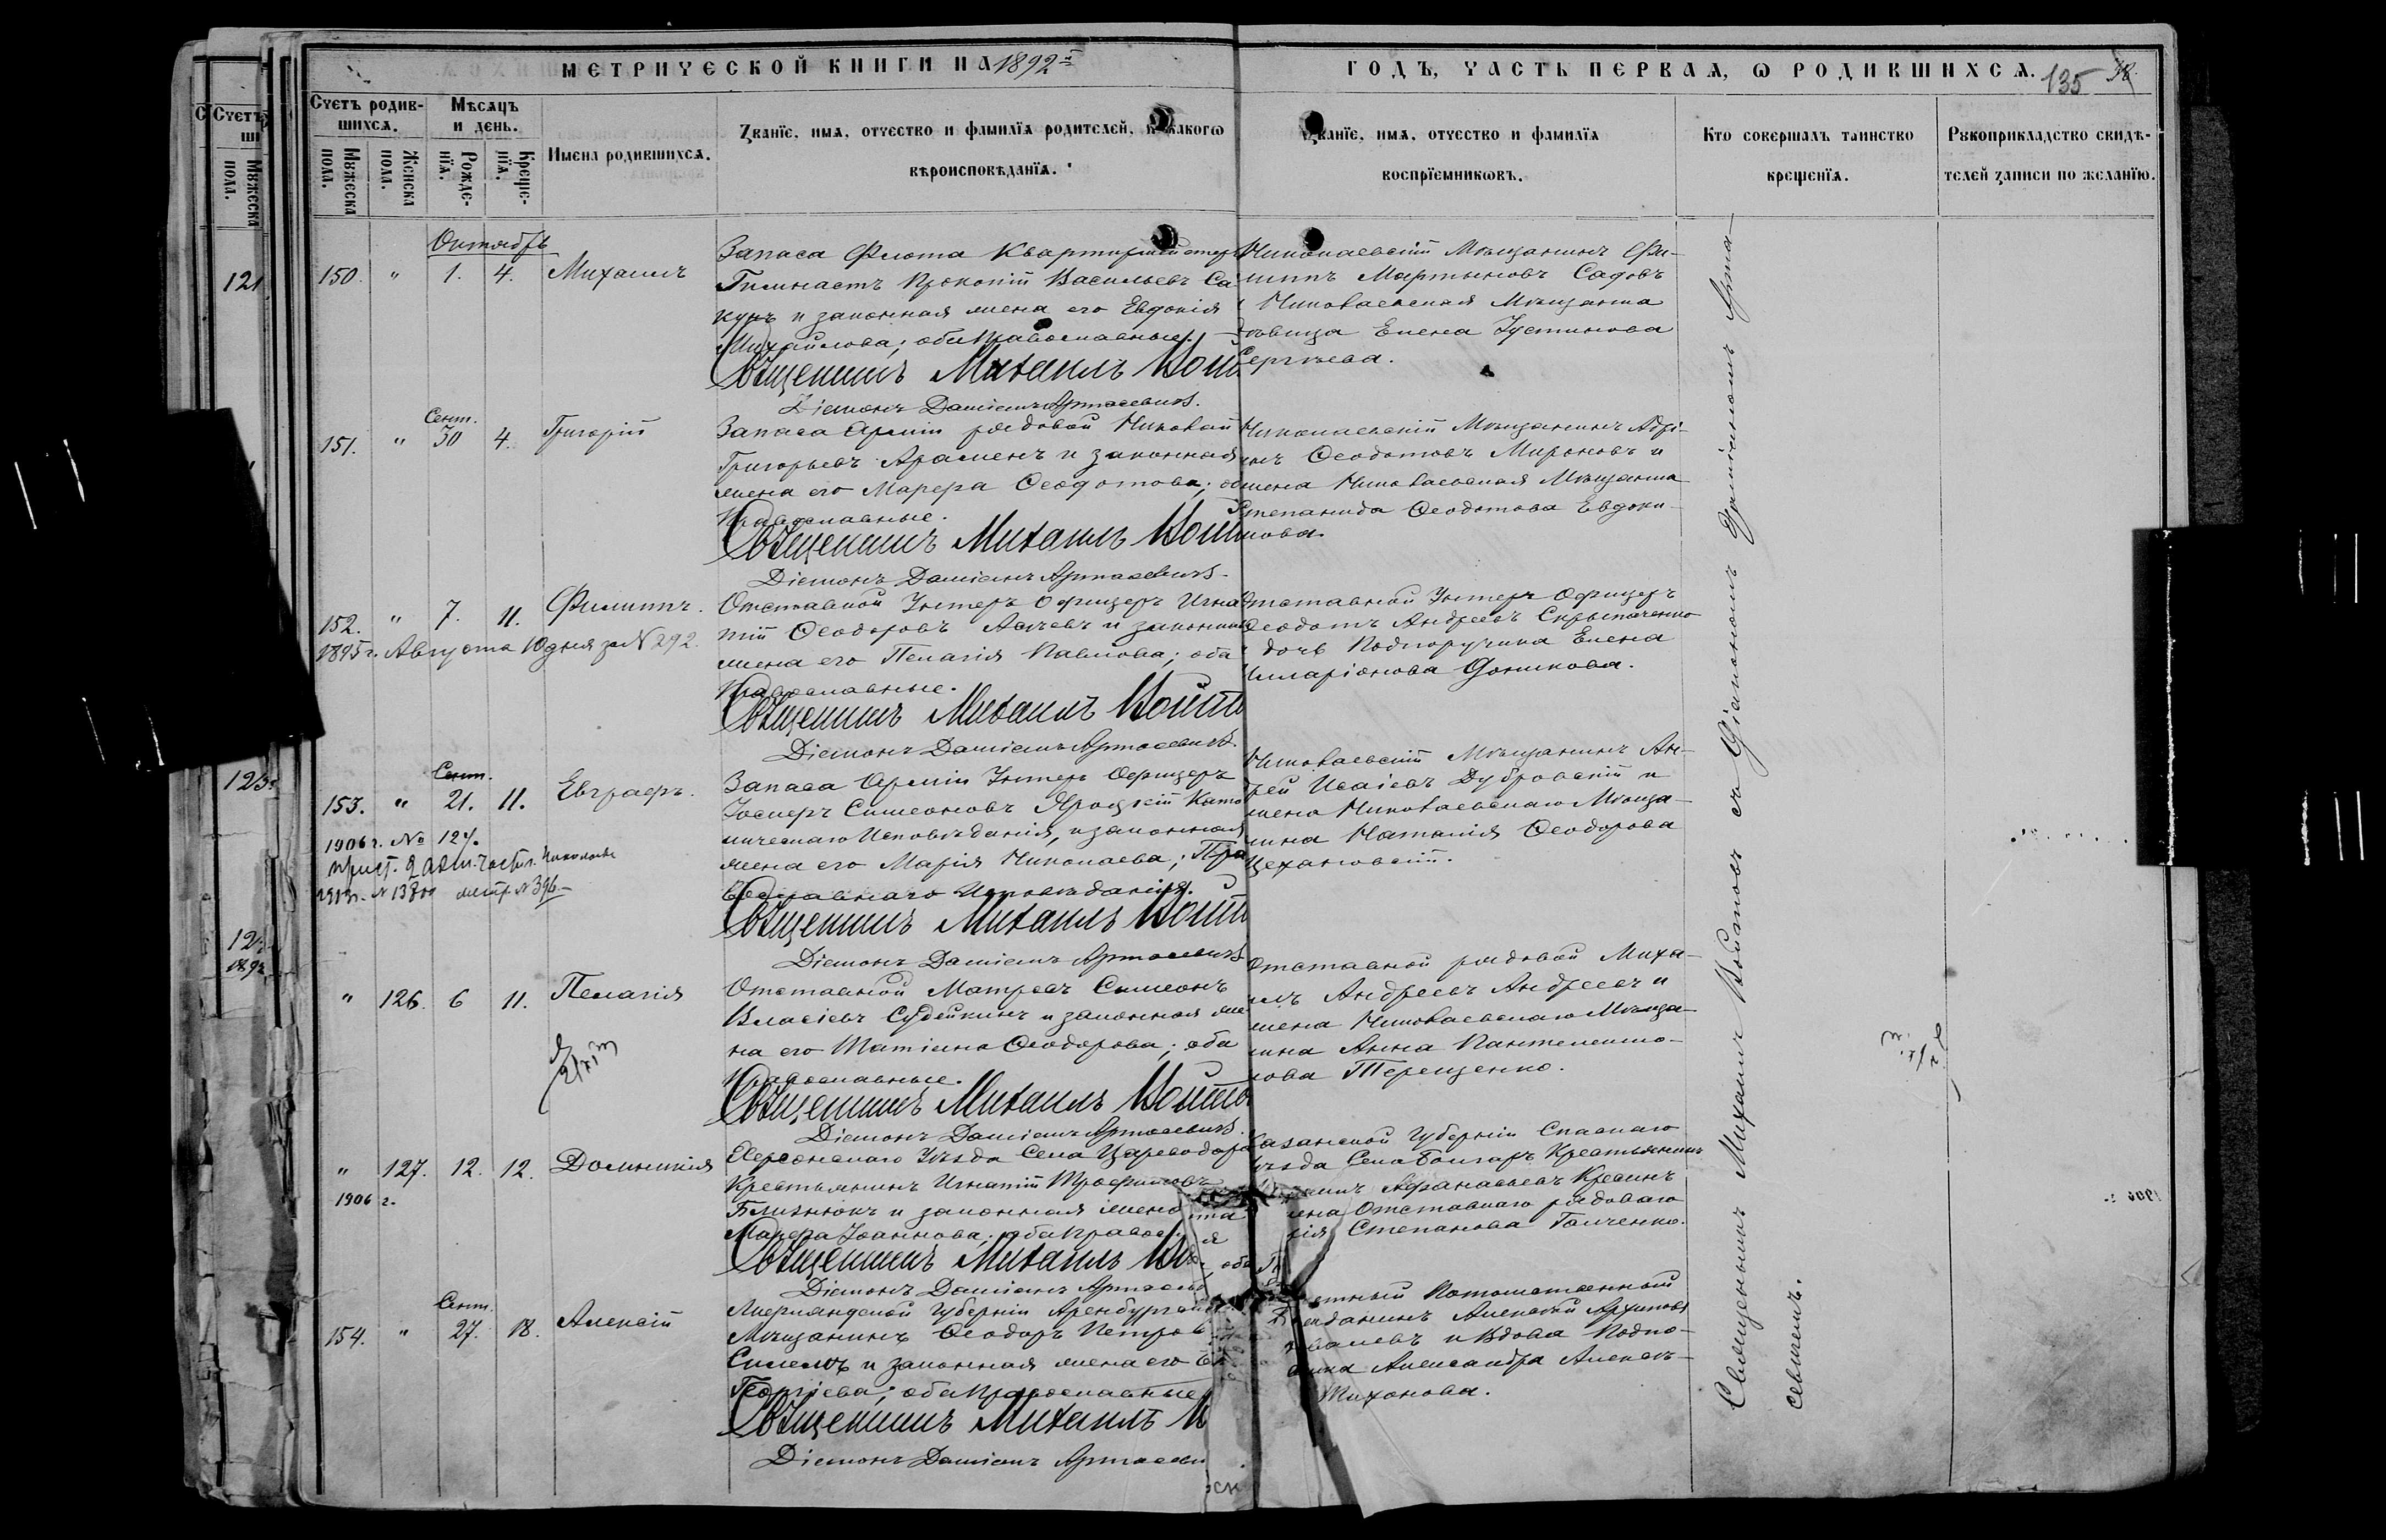 МЕТРИЧЕСКОЙ КНИГИ НА 1892й
ГОДЪ, ЧАСТЬ ПЕРВАЯ, Ѡ РОДИВШИХСЯ.
135
Счетъ родив-
шихся.
Мѣсяцъ
и день.
Мужеска
пола.
Женска
пола.
Рожде-
нїя.
Креще-
нїя.
Имена родившихся.
Званїе, имя, отчество и фамилїя родителей, и какогѡ
вѣроисповѣданїя.
Званїе, имя, отчество и фамилїя
воспрїемникѡвъ.
Кто совершалъ таинство
крещенїя.
Рукоприкладство свидѣ-
телей записи по желанїю.
Октябрь
150. " 1. 4. Михаилъ
Запаса Флота Квартирмейстеръ
Гимнастъ Прокопій Васильевъ Са
кунъ и законная жена его Евдокія
Михайлова; оба Православные.
Священникъ Михаилъ Вой
Діаконъ Даміанъ Артасевичъ.
Николаевскій Мѣщанинъ Фи-
липпъ Мартыновъ Садовъ
Николаевская Мѣщанка
вица Елена Іустинова
Сергѣева.
151. " Сент. 30 4. Григорій
Запаса Арміи рядовой Николай
Григорьевъ Араменъ и законная
жена его Марѳа Ѳеодотова;
Православные.
Священникъ Михаилъ Вой
Діаконъ Даміанъ Артасевичъ.
Николаевскій Мѣщанинъ Адрі-
нъ Ѳеодотовъ Мироновъ и
жена Николаевская Мѣщанка
Степанида Ѳеодотова Евдоки-
мова.
152. " 7. 11. Филиппъ.
1895 г. Августа 10 дня за № 292.
Отставной Унтеръ Офицеръ Игна
тій Ѳеодоровъ Асѣевъ и законная
жена его Пелагія Павлова; оба
Православные.
Священникъ Михаилъ Войт
Діаконъ Даміанъ Артасевичъ.
Отставной Унтеръ Офицеръ
Ѳеодотъ Андреевъ Скрыпаченко
дочь Подпоручика Елена
Илларіонова Доникова.
153. " Сент. 21. 11. Евграфъ.
1906 г. № 127.
№ 1380 № 396
Запаса Арміи Унтеръ Офицеръ
Іосифъ Симеоновъ Яроцкій Като
лическаго Исповѣданія, и законная
жена его Марія Николаева; Пра
вославнаго Исповѣданія.
Священникъ Михаилъ Войт
Діаконъ Даміанъ Артасевичъ
Николаевскій Мѣщанинъ Ан-
дрей Исаіевъ Дубровскій и
жена Николаевскаго Мѣща-
нина Наталія Ѳеодорова
Цехановскій.
" 126. 6 11. Пелагія
Отставной Матросъ Симеонъ
Власіевъ Судейкинъ и законная же-
на его Татіана Ѳеодорова; оба
Православные.
Священникъ Михаилъ Войт
Діаконъ Даміанъ Артасевичъ.
Отставной рядовой Миха-
илъ Андреевъ Андреевъ и
жена Николаевскаго Мѣща-
нина Анна Пантелеимо-
нова Терещенко.
" 127. 12. 12. Домникія
1906 г.
Херсонскаго Уѣзда Села Цареводара
Крестьянинъ Игнатій Трофимовъ
Близнюкъ и законная жена
Марѳа Іоаннова; оба правос
Священникъ Михаилъ Во
Діаконъ Даміанъ Артасев
Казанской Губерніи Спаскаго
уѣзда Села Болгаръ Крестьянинъ
Афанасьевъ Кресинъ
жена Отставнаго рядоваго
рія Степанова Галченко.
154. " Сент. 27. 18. Алексій
Лифляндской Губерніи Аренбургскій
Мѣщанинъ Ѳеодоръ Петров
и законная жена его
Георгіева; оба Православные
Священникъ Михаилъ
Діаконъ Даміанъ Артасеви
етный Потомственный
жданинъ Алексѣй Архиповъ
валевъ и Вдова Подпо-
чика Александра Алексѣ-
Тихонова.
Священникъ Михаилъ Войтовъ съ Діакономъ Даміаномъ Арта-
севичемъ.